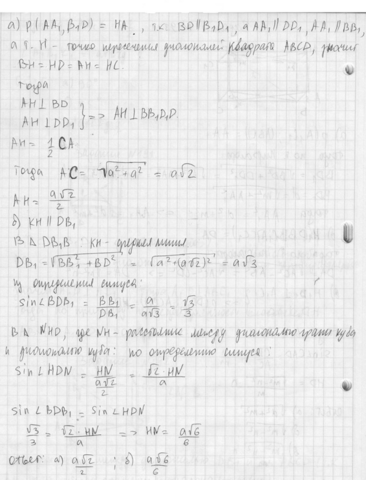 а) ρ(AA₁, B₁D) = HA, т.к. BD∥B₁D₁, а AA₁∥DD₁, AA₁∥BB₁,
а т. H - точка пересечения диагоналей квадрата ABCD, значит
BH = HD = AH = HC
тогда
AH⊥BD
AH⊥DD₁ } => AH⊥BB₁D₁D
AH = 1/2 CA
Тогда AC = √(a² + a²) = a√2
AH = a√2/2
б) KH∥DB₁
В Δ DB₁B: KH - средняя линия
DB₁ = √(BB₁² + BD²) = √(a² + (a√2)²) = a√3
из определения синуса:
sin∠BDB₁ = BB₁/DB₁ = a/a√3 = √3/3
В Δ NHD, где NH - расстояние между диагональю грани куба
и диагональю куба: по определению синуса
sin∠HDN = HN/(a√2/2) = √2·HN/a
sin∠BDB₁ = sin∠HDN
√3/3 = √2·HN/a => HN = a√6/6
ответ: а) a√2/2 ; б) a√6/6